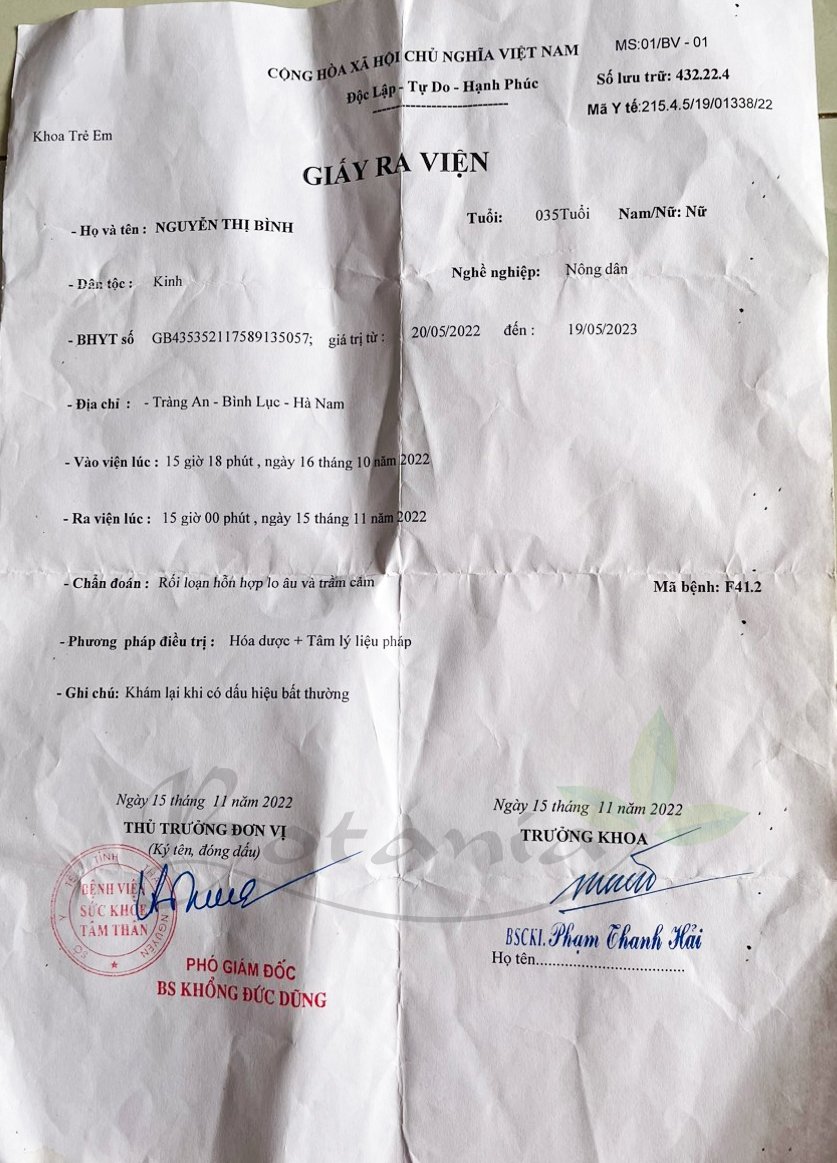 CỘNG HÒA XÃ HỘI CHỦ NGHĨA VIỆT NAM
MS:01/BV - 01
Độc Lập - Tự Do - Hạnh Phúc
Số lưu trữ: 432.22.4
Mã Y tế:215.4.5/19/01338/22
Khoa Trẻ Em
GIẤY RA VIỆN
- Họ và tên : NGUYỄN THỊ BÌNH Tuổi: 035Tuổi Nam/Nữ: Nữ
- Dân tộc : Kinh Nghề nghiệp: Nông dân
- BHYT số GB435352117589135057; giá trị từ : 20/05/2022 đến : 19/05/2023
- Địa chỉ : - Tràng An - Bình Lục - Hà Nam
- Vào viện lúc : 15 giờ 18 phút , ngày 16 tháng 10 năm 2022
- Ra viện lúc : 15 giờ 00 phút , ngày 15 tháng 11 năm 2022
- Chẩn đoán : Rối loạn hỗn hợp lo âu và trầm cảm Mã bệnh: F41.2
- Phương pháp điều trị : Hóa dược + Tâm lý liệu pháp
- Ghi chú: Khám lại khi có dấu hiệu bất thường
Ngày 15 tháng 11 năm 2022
THỦ TRƯỞNG ĐƠN VỊ
(Ký tên, đóng dấu)
BỆNH VIỆN
SỨC KHỎE
TÂM THẦN
SỞ Y TẾ TỈNH
NGUYÊN
PHÓ GIÁM ĐỐC
BS KHỔNG ĐỨC DŨNG
Ngày 15 tháng 11 năm 2022
TRƯỞNG KHOA
BSCKI. Phạm Thanh Hải
Họ tên......................................
Botania